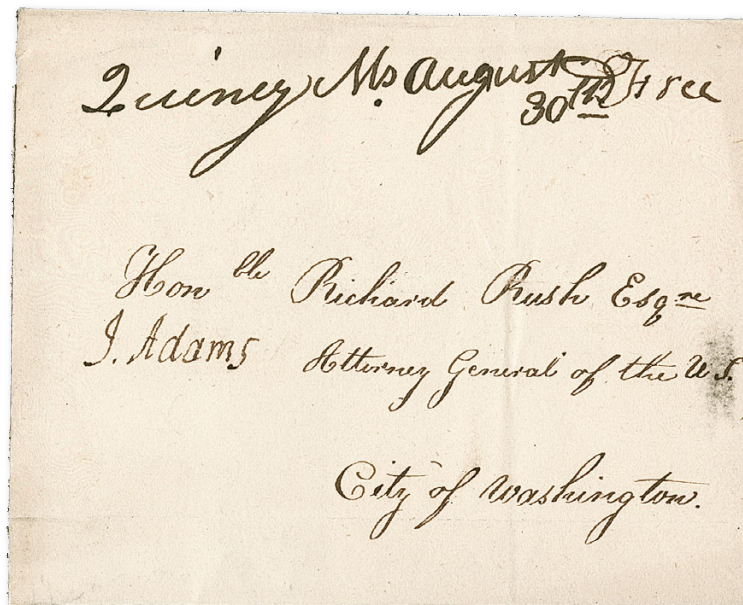 Quincy Ms August 30th Free
Honble Richard Rush Esqre
J. Adams Attorney General of the U S.
City of Washington.